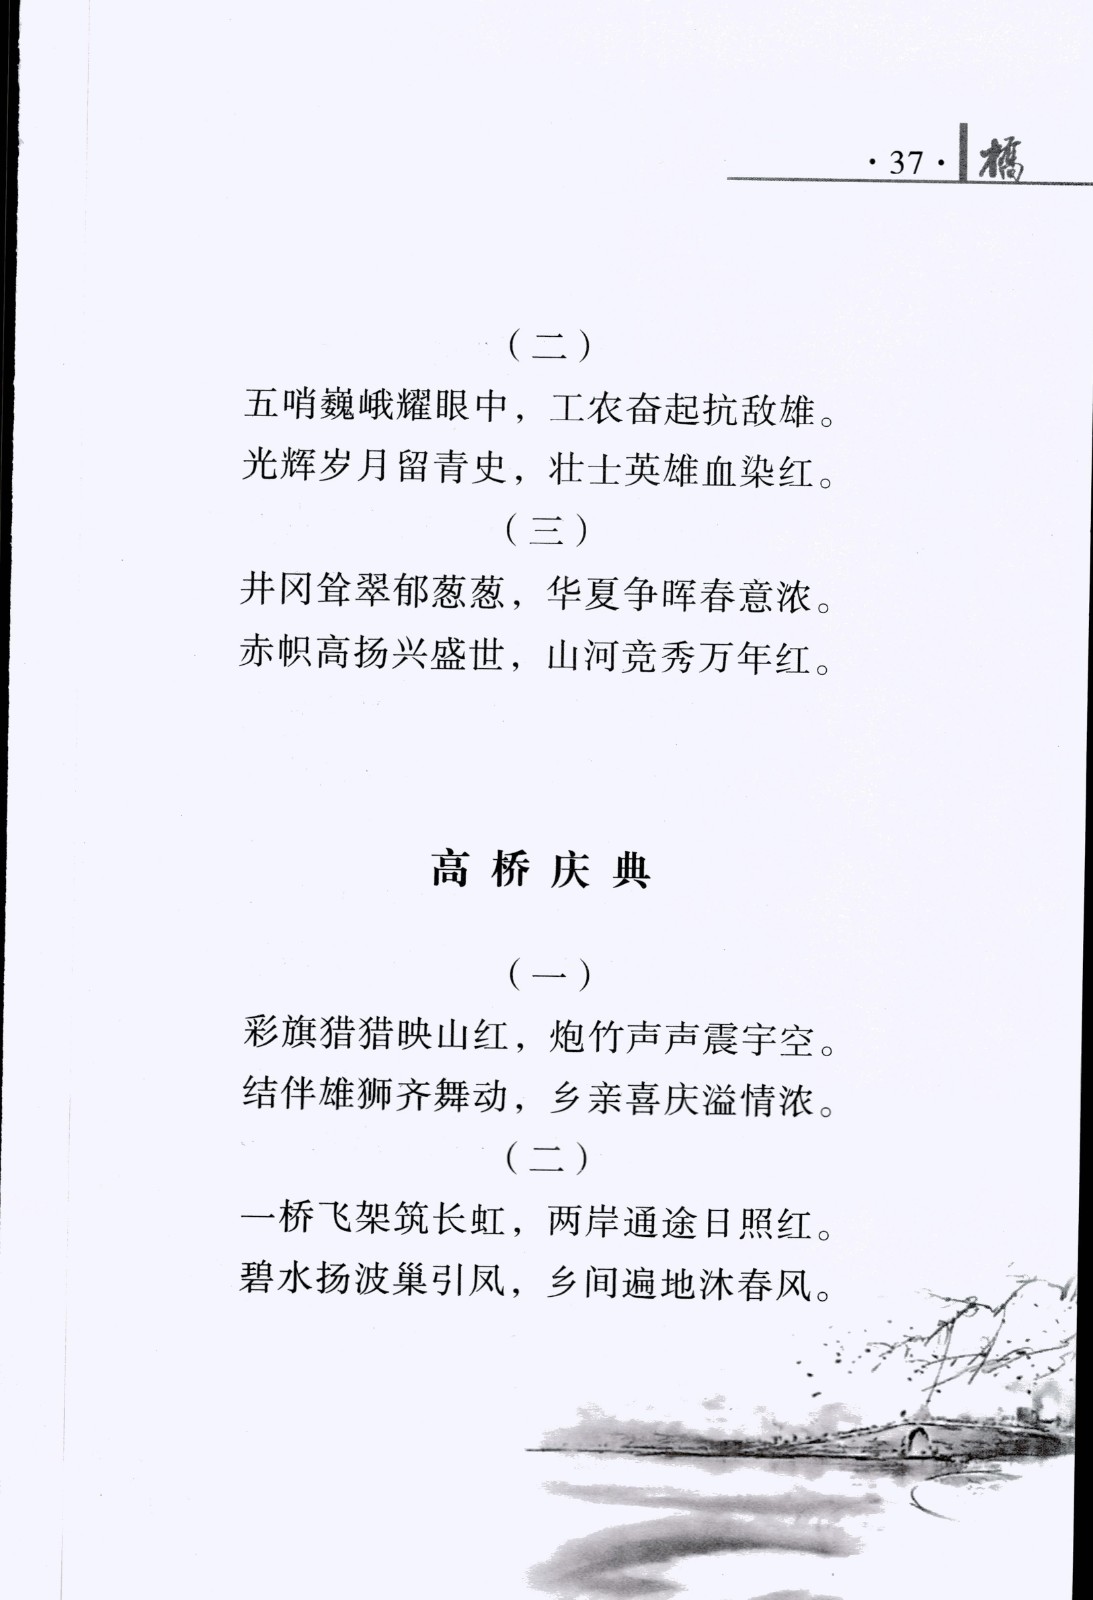 ·37· 橋
（二）
五哨巍峨耀眼中，工农奋起抗敌雄。
光辉岁月留青史，壮士英雄血染红。
（三）
井冈耸翠郁葱葱，华夏争晖春意浓。
赤帜高扬兴盛世，山河竞秀万年红。
高桥庆典
（一）
彩旗猎猎映山红，炮竹声声震宇空。
结伴雄狮齐舞动，乡亲喜庆溢情浓。
（二）
一桥飞架筑长虹，两岸通途日照红。
碧水扬波巢引凤，乡间遍地沐春风。